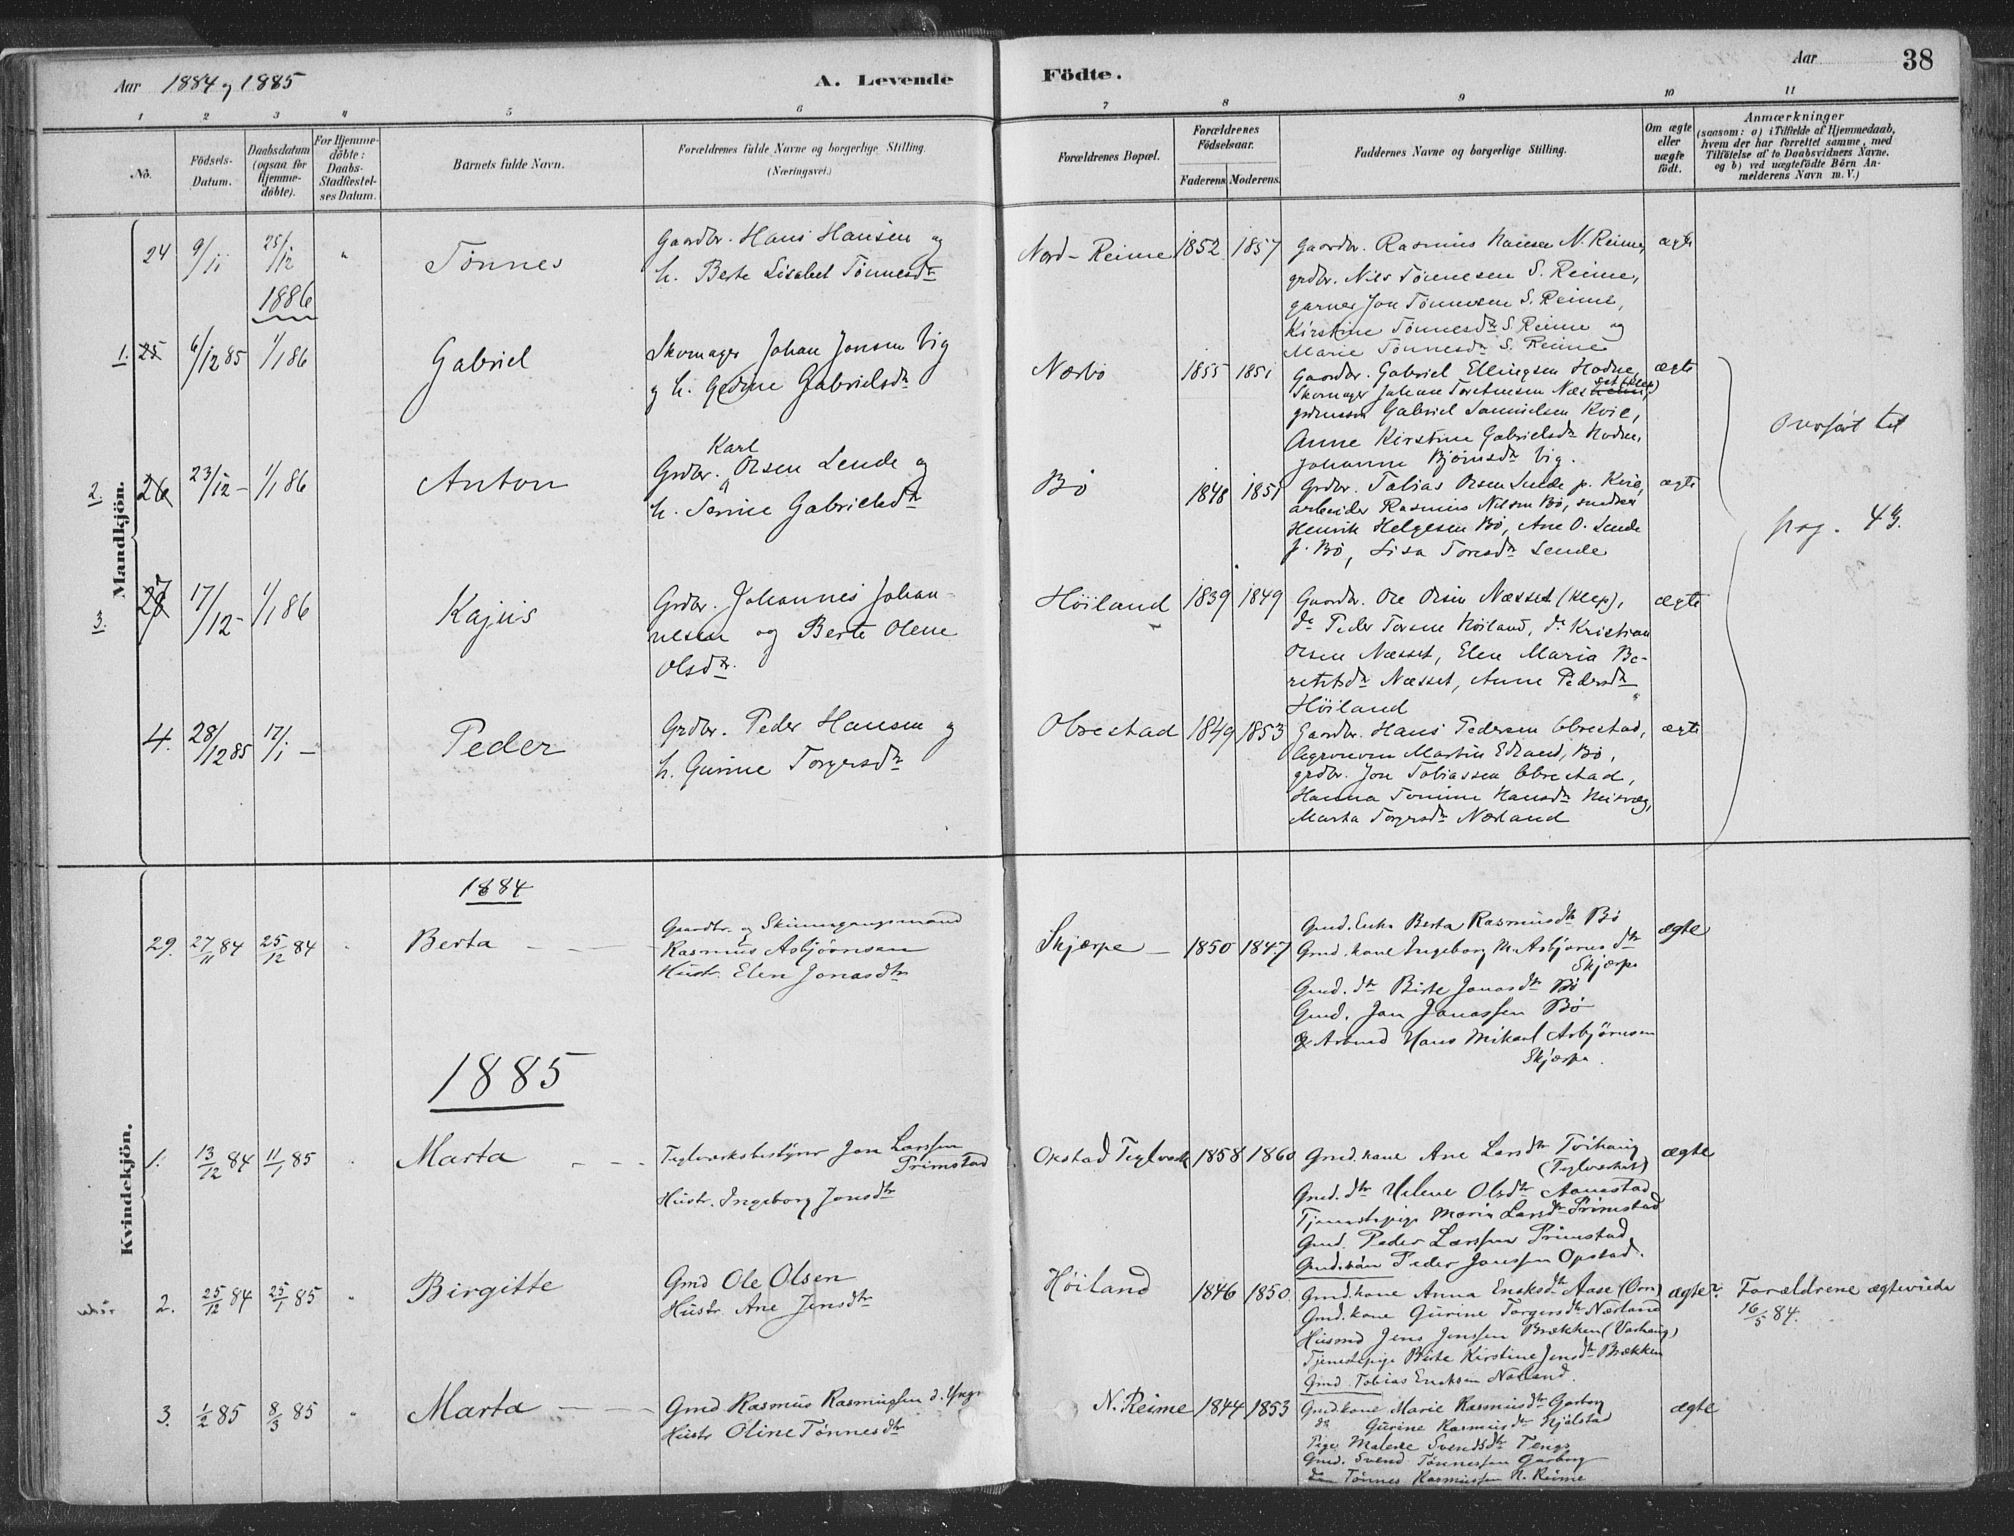 Aar 1884 og 1885
A. Levende Födte.
Aar 38
1 2 3 4 5 6 7 8 9 10 11
No.
Födsels-Datum.
Daabsdatum (ogsaa for Hjemme-döbte).
For Hjemme-döbte: Daabs-Stadfæstelses Datum.
Barnets fulde Navn.
Forældrenes fulde Navne og borgerlige Stilling.
(Næringsvei.)
Forældrenes Bopæl.
Forældrenes Födselsaar.
Faderens. Moderens.
Faddernes Navne og borgerlige Stilling.
Om ægte eller uægte födt.
Anmærkninger
(saasom: a) i Tilfælde af Hjemmedaab, hvem der har forrettet samme, med Tilföielse af to Daabsvidners Navne. og b) ved uægtefödte Börn Anmelderens Navn m. V.)
Mandkjön.
24 9/11 25/12 " Tønnes
Gaardbr. Hans Hansen og
h. Berte Lisabet Tønnesdtr
Nord-Reime 1852 1857
Gaardbr. Rasmus Hansen N. Reime, ægte
grdbr. Nils Tønnesen S. Reime,
garver Jon Tønnesen S. Reime,
Kirstine Tønnesdtr S. Reime og
Marie Tønnesdtr S. Reime
1886
1. 25 6/12 85 1/1 86 Gabriel
Skomager Johan Jonsen Vig
og h. Gedine Gabrielsdtr
Nærbø 1855 1851
Gaardbr. Gabriel Ellingsen Hodne, ægte
Skomager Johan Torstensen Næs
Gabriel Samuelsen Kvie,
Anne Kirstine Gabrielsdtr Hodne,
Johanne Bjørnsdtr Vig.
2. 26 23/12 - 1/1 86 Anton
Karl
Grdbr. Olsen Lende og
h. Serine Gabrielsdtr
Bø 1848 1851
Grdbr. Tobias Olsen Lende p. Kvie, ægte
arbeider Rasmus Nilsen Bø, snedker
Henrik Helgesen Bø, Ane O. Lende
p. Bø, Lisa Toresdtr Lende
3. 27 17/12 - 1/1 86 Kajus
Grdbr. Johannes Johan-
nesen og Berte Olene
Olsdtr.
Höiland 1839 1849
Gaardbr. Ole Olsen Næsset (Klep), ægte
do Peder Torsen Höiland, do Kristian
Olsen Næsset, Elen Maria Be-
Næsset, Anne Pedersdtr
Höiland
4. 28/12 85 17/1 - Peder
Grdbr. Peder Hansen og
h. Gurine Torgersdtr
Obrestad 1849 1853
Gaardbr. Hans Pedersen Obrestad, ægte
Agronom Martin Edland, Bø,
grdbr. Jon Tobiassen Obrestad,
Hanna Tomine Hansdtr
Marta Torgersdtr Nærland
overført til
pag. 43.
Kvindekjön.
1884
29. 27/11 84 25/12 84 " Berta
Gaardbr. og Skiinngangsmand
Rasmus Asbjörnsen
Hustr. Elen Jonasdtr
Skjærpe 1850 1847
Gmd. Enke Berta Rasmusdtr Bö ægte
Gmd. kone Ingeborg M. Asbjørnsdtr
Skjærpe
Gmd. dtr Birte Jonasdtr Bö
Gmd. Jan Jonassen Bö
Arbmd Hans Mikael Asbjörnsen
Skjærpe.
1885
1. 13/12 84 11/1 85 " Marta
Teglværksbestyrer Jon Larssen
Primstad
Hustr. Ingeborg Jonsdtr
Opstad Teglværk 1858 1860
Gmd. kone Ane Larsdtr Tvihaug ægte
(Teglværket)
Gmd. dtr Helene Olsdtr Aanestad
Tjenestepige Maria Larsdtr Primstad
Gmd. Peder Larssen Primstad
Gmd. sön Peder Jonssen Opstad.
2. 25/12 84 25/1 85 " Birgitte
Gmd Ole Olsen
Hustr. Ane Jensdtr
Höiland 1846 1850
Gmd. kone Anna Eriksdtr Aase (Orre) ægte?
Gmd. kone Gurine Torgersdtr Nærland
Husmd Jens Jenssen Brækken (Varhaug)
Tjenestepige Birte Kirstine Jensdtr Brækken
Gmd Tobias Eriksen Nærland.
Forældrene ægteviede
16/5 84.
3. 1/2 85 8/3 85 " Marta
Gmd Rasmus Rasmussen d. Yngr
Hustr Oline Tønnesdtr
N. Reime 1844 1853
Gmd kone Marie Rasmusdtr Garborg ægte
do Gurine Rasmusdtr Njölstad
Pige Malene Svendsdtr Tengs
Gmd. Svend Tönnessen Garborg
Tönnes Rasmussen N. Reime